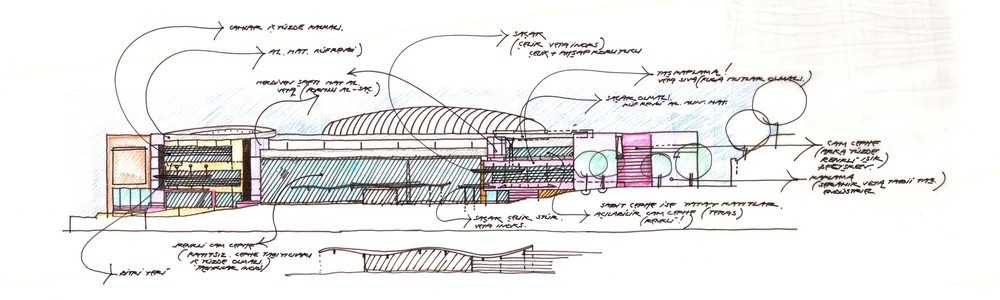 CAMLAR İÇ YÜZDE KALMALI.
AL. MAT. KÜF RENGİ)
MERDİVEN ŞAFTI MAT AL.
VEYA (RENKLİ AL-SAÇ)
SAÇAK
(ÇELİK VEYA INOKS)
ÇELİK + AHŞAP KORUYUCU
TAŞ KAPLAMA!
VEYA SIVA (FUGA MUTLAK OLMALI.)
SAÇAK OLMALI.
KÜF RENGİ AL. MAT.
CAM CEPHE
ARKA YÜZDE
RENKLİ BİR
KAPLAMA.
(SERAMİK VEYA TABİİ TAŞ.
SABİT CEPHE İSE YATAY KAYITLAR.
AÇILABİLİR CAM CEPHE (TERAS)
(RENKLİ!)
SAÇAK ÇELİK STÜR.
VEYA INOKS.
RENKLİ CAM CEPHE
(KAYITSIZ. CEPHE TAŞIYICILARI
İÇ YÜZDE OLMALI.
YERİ